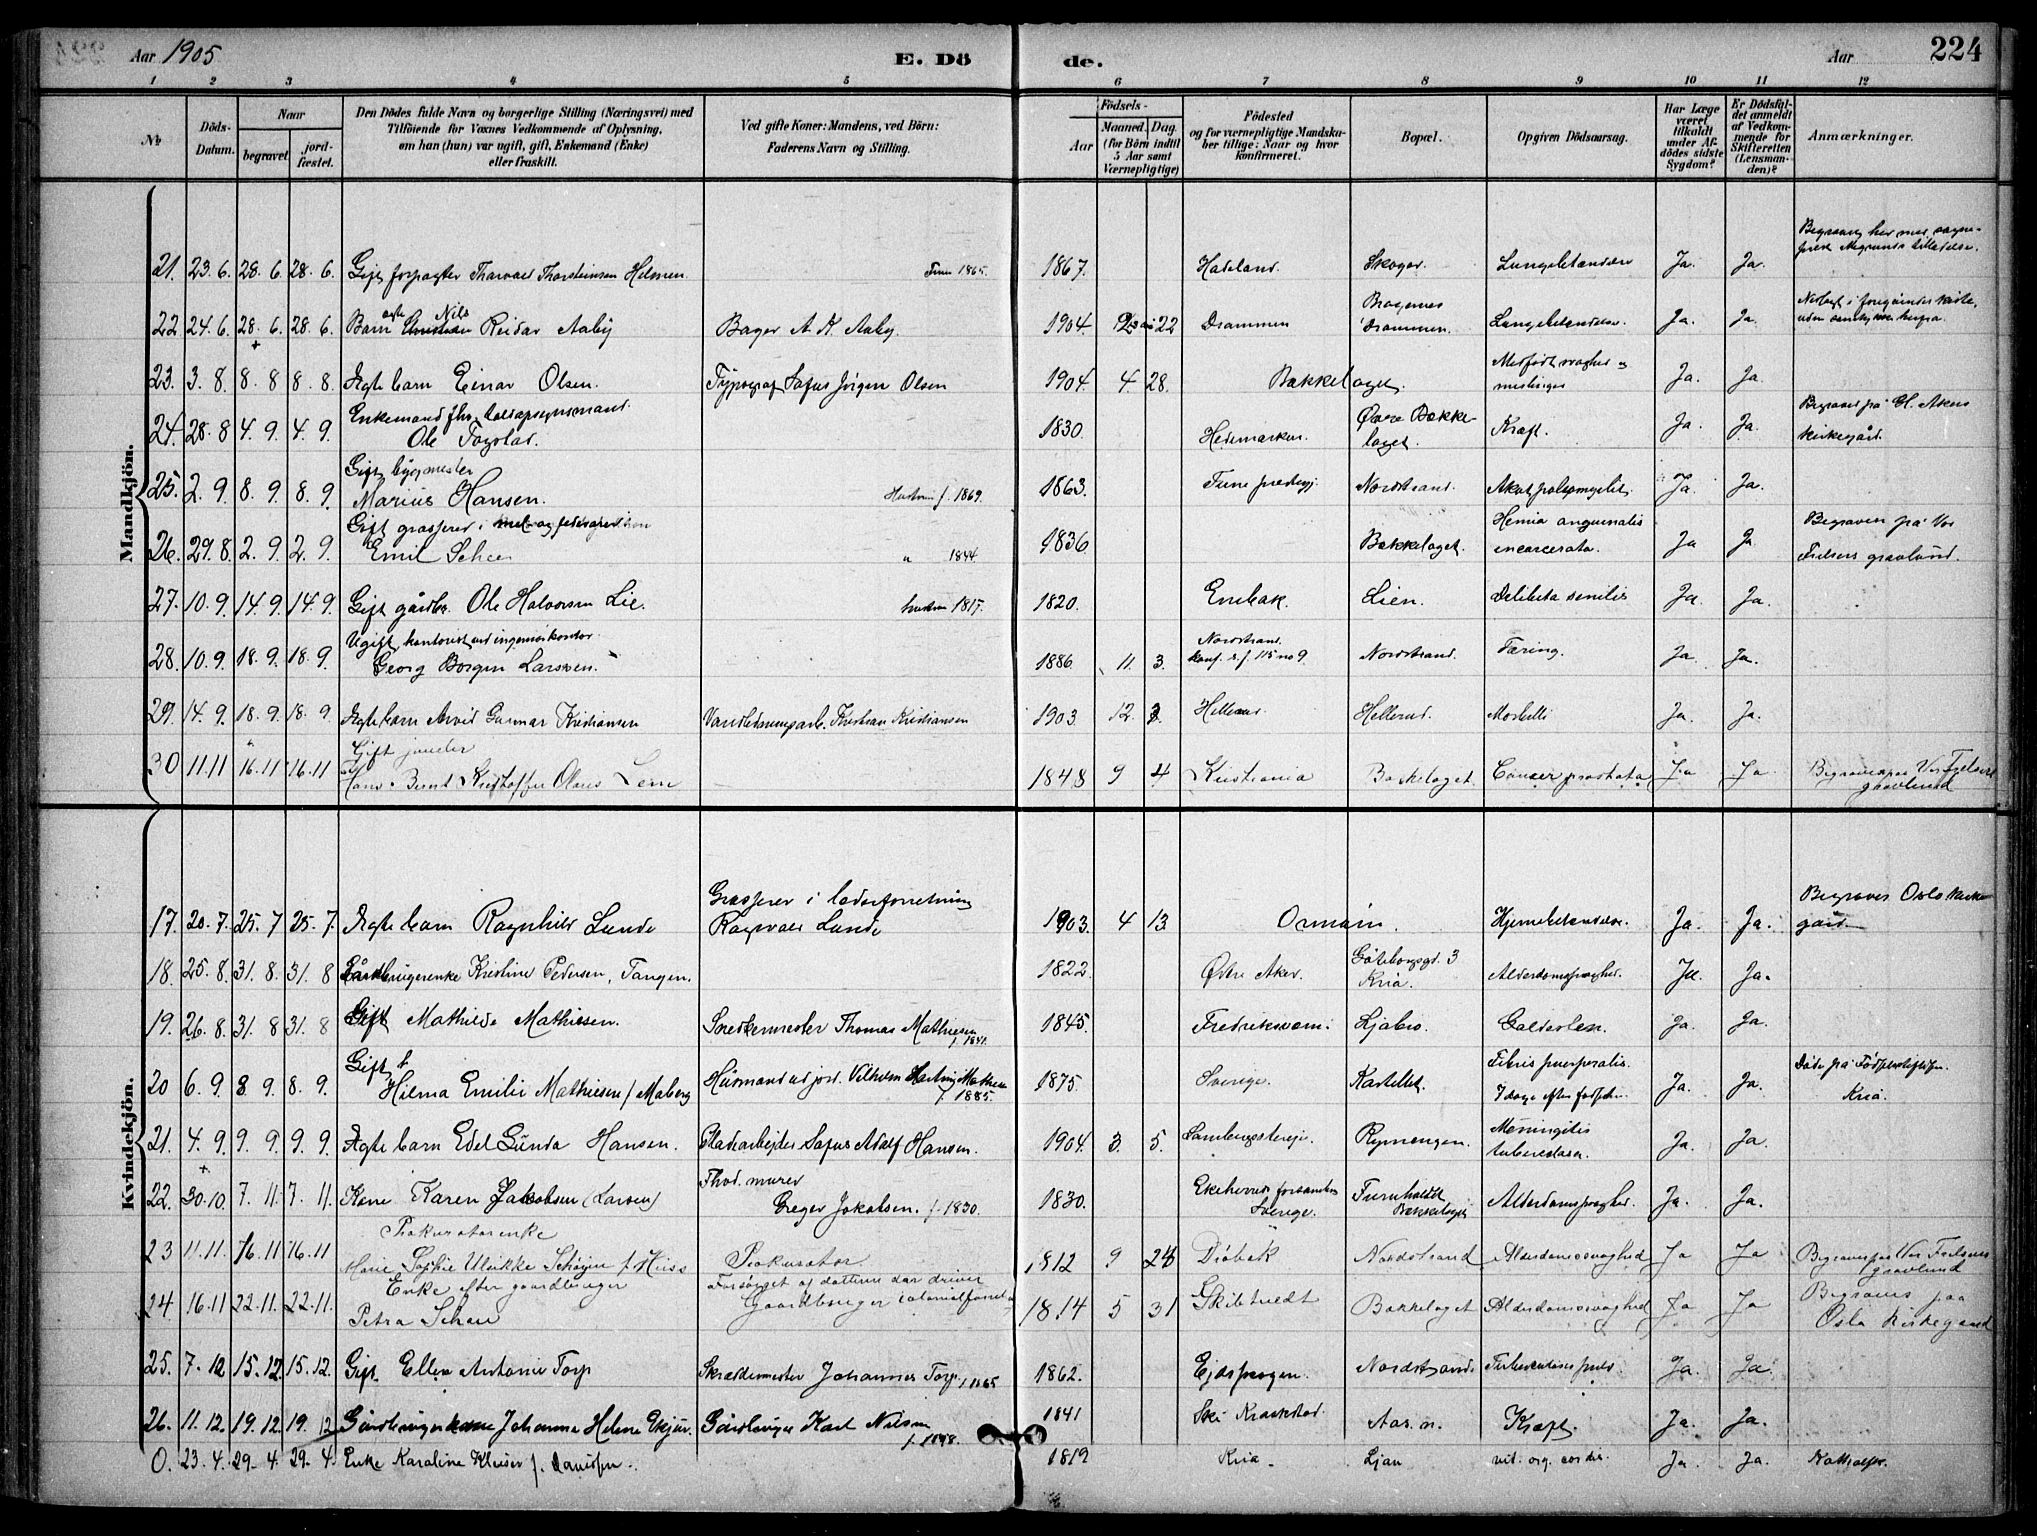 Aar 1905
E. Dö
de.
Aar
224
1 2 3 4 5 6 7 8 9 10 11 12
No
Döds-Datum.
Naar
begravet.
jord-fæstet.
Den Dödes fulde Navn og borgerlige Stilling (Næringsvei) med
Tilföiende for Voxnes Vedkommende af Oplysning,
om han (hun) var ugift, gift, Enkemand (Enke)
eller fraskilt.
Ved gifte Koner: Mandens, ved Börn:
Faderens Navn og Stilling.
Födsels-
Aar
Maaned. Dag.
(for Börn indtil
5 Aar samt
Værnepligtige)
Födested
og for værnepligtige Mandska-
ber tillige: Naar og hvor
konfirmeret.
Bopæl.
Opgiven Dödsaarsag.
Har Læge
været
tilkaldt
under Af-
dödes sidste
Sygdom?
Er Dödsfal-
det anmeldt
af Vedkom-
mende for
Skifteretten
(Lensman-
den)?
Anmærkninger.
Mandkjön.
21. 23. 6. 28. 6. 28. 6. Gift forpagter Thorvald Thorsteinsen Helmen 1865. 1867. Hadeland. Skoger. Lungebetændelse Ja. Ja. Begravet her
22. 24. 6. 28. 6. 28. 6. Barn Nils Reidar Aaby Bager A. K. Aaby. 1904 22 Drammen Bragernes Drammen. Lungebetændelse. Ja. Ja.
23. 3. 8. 8. 8 8. 8. Ægte barn Einar Olsen. Typograf Sofus Jörgen Olsen 1904 4 28. Bækkelaget. Medfödt svaghed og meslinger Ja. Ja.
24. 28. 8 4. 9. 4. 9. Enkemand fhv. Ole Fogstad. 1830. Hedemarken. Østre Bækkelaget. Kræft. Ja. Ja. Begravet på Gl. Akers kirkegård.
25. 2. 9. 8. 9. 8. 9. Gift bygmester Marius Hansen. Hustru f. 1869. 1863. Tune prestegj. Nordstrand. Akut poliomyelit. Ja. Ja.
26. 29. 8. 2. 9. 2. 9. Gift grosserer i mel og fedevarer Emil Schee " 1844. 1836 Bækkelaget. Hernia inguinalis incarcerata. Ja Ja Begraven på Vor Frelsers gravlund.
27. 10. 9. 14. 9. 14. 9. Gift gårdbr. Ole Halvorsen Lie. hustru 1817. 1820. Enebak. Lien. Debilitas senilis Ja. Ja.
28. 10. 9. 18. 9. 18. 9. Ugift, kontorist ved ingeniørkontor. Georg Borgen Larssen. 1886 11. 3. Nordstrand. konf. s. f. 115 no 9. Nordstrand. Tæring. Ja Ja.
29. 14. 9. 18. 9. 18. 9. Ægte barn Arvid Gunnar Kristiansen Vandledningsarb. Kristian Kristiansen 1903 12. Hellerud. Hellerud. Morbilli Ja. Ja.
30 11. 11 16. 11 16. 11 Gift Hans Bernt Kristoffer Olaus Lem 1848 9 4 Kristiania Bækkelaget. Cancer prostata Ja Ja Begraves paa Vor Frelsers gravlund
Kvindekjön.
17. 20. 7. 25. 7 25. 7. Ægte barn Ragnhild Lunde Grosserer i læderforretning Ragnvald Lunde 1903. 4 13 Ormøen. Hjernebetændelse. Ja. Ja. Begraves Oslo kirkegård
18. 25. 8. 31. 8. 31. 8 Gårdbrugerenke Kristine Pedersen, Tangen. 1822. Østre Aker. Göteborggd. 3 Kria. Alderdomssvaghed. Ja Ja.
19. 26. 8. 31. 8 31. 8 Gift Mathilde Mathiesen. Snedkermester Thomas Mathiesen f. 1841. 1845. Fredriksværn. Ljabro. Galdesten. Ja. Ja.
20 6. 9. 8. 9. 8. 9. Gift Hilma Emilie Mathiesen f. Moberg Husmand ud. jord. Vilhelm Mathiesen f. 1885. 1875. Sverige. Kastellet. Febris puerperalis. 7 dage efter fødselen. Ja. Ja. Døde på Fødselsstiftelsen. Kria.
21. 4. 9. 9. 9. 9. 9. Ægte barn Edel Gunda Hansen. Pladearbejder Sofus Adolf Hansen. 1904. 3. 5. Ryenengen. Meningitis tuberculosa. Ja. Ja.
22. 30. 10. 7. 11. 7. 11. Kone Karen Jakobsen (Larsen) murer Greger Jakobsen. f. 1830. 1830. Sverige. Bækkelaget Alderdomssvaghed. Ja. Ja.
23 11. 11. 16. 11 16. 11 Prokuratorenke Marie Sophie Ulrikke Schøyen f. Huss Prokurator 1812 9 Drøbak Nordstrand Alderdomssvaghed Ja Ja Begraves paa Vor Frelsers gravlund
24. 16. 11 22. 11. 22. 11. Enke efter gaardbruger Petra Schau Forsørget af datteren der driver Gaardbruger colonialforretn. 1814 5 31 Skibtvedt Bækkelaget Alderdomssvaghed Ja Ja Begraves paa Oslo Kirkegaard
25. 7. 12 15. 12. 15. 12. Gift. Ellen Antonie Torp Skræddermester Johannes Torp. f. 1865 1862. Ejdskogen. Nordstrand. Tuberculosis pulm. Ja. Ja.
26. 11. 12. 19. 12. 19. 12 Gårdbruger Johanne Helene Ekjær. Gårdbruger Karl Nilsen f. 1848. 1841 Ski Kraakstad. Aas. n. Kræft. Ja. Ja.
0. 23. 4. 29. 4. 29. 4. Enke Karoline Klouser f. Davidsen. 1819 Kria. Ljan vit. org. cordis. Ja. Ja.